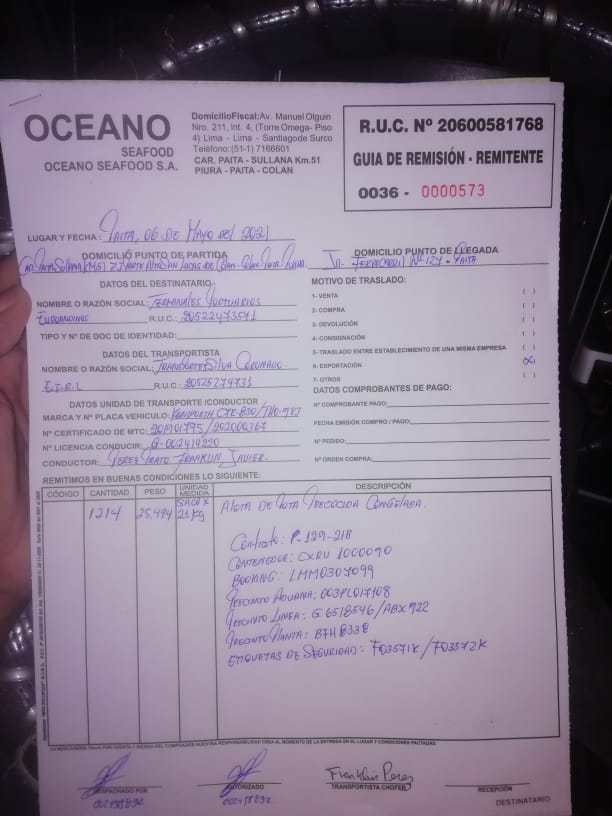 OCEANO
SEAFOOD
OCEANO SEAFOOD S.A.
DomicilioFiscal:Av. Manuel Olguin
Nro. 211, Int. 4, (Torre Omega- Piso
4) Lima - Lima - Santiagode Surco
Teléfono:(51-1) 7166601
CAR. PAITA - SULLANA Km.51
PIURA - PAITA - COLAN
R.U.C. Nº 20600581768
GUIA DE REMISIÓN - REMITENTE
0036 - 0000573
LUGAR Y FECHA : Paita, 06 de Mayo del 2021
DOMICILIO PUNTO DE PARTIDA
DOMICILIO PUNTO DE LLEGADA
Jr. Ferrocarril Nº 127 - Paita
DATOS DEL DESTINATARIO
NOMBRE O RAZÓN SOCIAL: Terminales Portuarios
Euroandinos R.U.C.: 20522473571
TIPO Y Nº DE DOC DE IDENTIDAD:
DATOS DEL TRANSPORTISTA
NOMBRE O RAZÓN SOCIAL: Transportes Silva Coronado
E.I.R.L R.U.C.: 20525274731
DATOS UNIDAD DE TRANSPORTE /CONDUCTOR
MARCA Y Nº PLACA VEHICULO: Kenworth
Nº CERTIFICADO DE MTC:
Nº LICENCIA CONDUCIR:
CONDUCTOR: Franklin Javier
MOTIVO DE TRASLADO:
1- VENTA ( )
2- COMPRA ( )
3- DEVOLUCIÓN ( )
4- CONSIGNACIÓN ( )
5- TRASLADO ENTRE ESTABLECIMIENTO DE UNA MISMA EMPRESA ( )
6- EXPORTACIÓN (X)
7- OTROS ( )
DATOS COMPROBANTES DE PAGO:
Nº COMPROBANTE PAGO:
FECHA EMISIÓN COMPRO / PAGO:
Nº PEDIDO:
Nº ORDEN COMPRA:
REMITIMOS EN BUENAS CONDICIONES LO SIGUIENTE:
CÓDIGO CANTIDAD PESO UNIDAD MEDIDA DESCRIPCIÓN
1214 25,494 Saco x 21 kg Aleta de Pota Precocida Congelada
Contrato: P-129-218
Contenedor: CXRU 1000090
Booking: LMM0307099
Precinto Aduana: 003PL017108
Precinto Linea: G 6518546/ABX 922
Precinto Planta: BFH 8338
Etiquetas de Seguridad: FQ3571K / FQ3572K
LA MERCADERIA VIAJA POR CUENTA Y RIESGO DEL COMPRADOR NUESTRA RESPONSABILIDAD CESA AL MOMENTO DE LA ENTREGA EN EL LUGAR Y CONDICIONES PACTADAS.
Franklin Perez
DESPACHADO POR
AUTORIZADO
TRANSPORTISTA CHOFER
RECEPCIÓN
DESTINATARIO